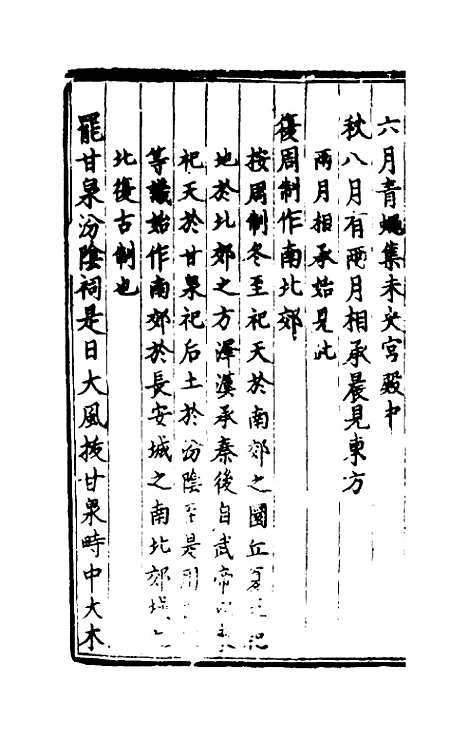 六月青蠅集未央宮殿中
秋八月有兩月相承晨見東方
兩月相承始見此
復周制作南北郊
按周制冬至祀天於南郊之圜丘夏至祀
地於北郊之方澤漢承秦後自武帝以來
祀天於甘泉祀后土於汾陰至是用
等議始作南郊於長安城之南北郊
北復古制也
罷甘泉汾陰祠是日大風拔甘泉畤中大木